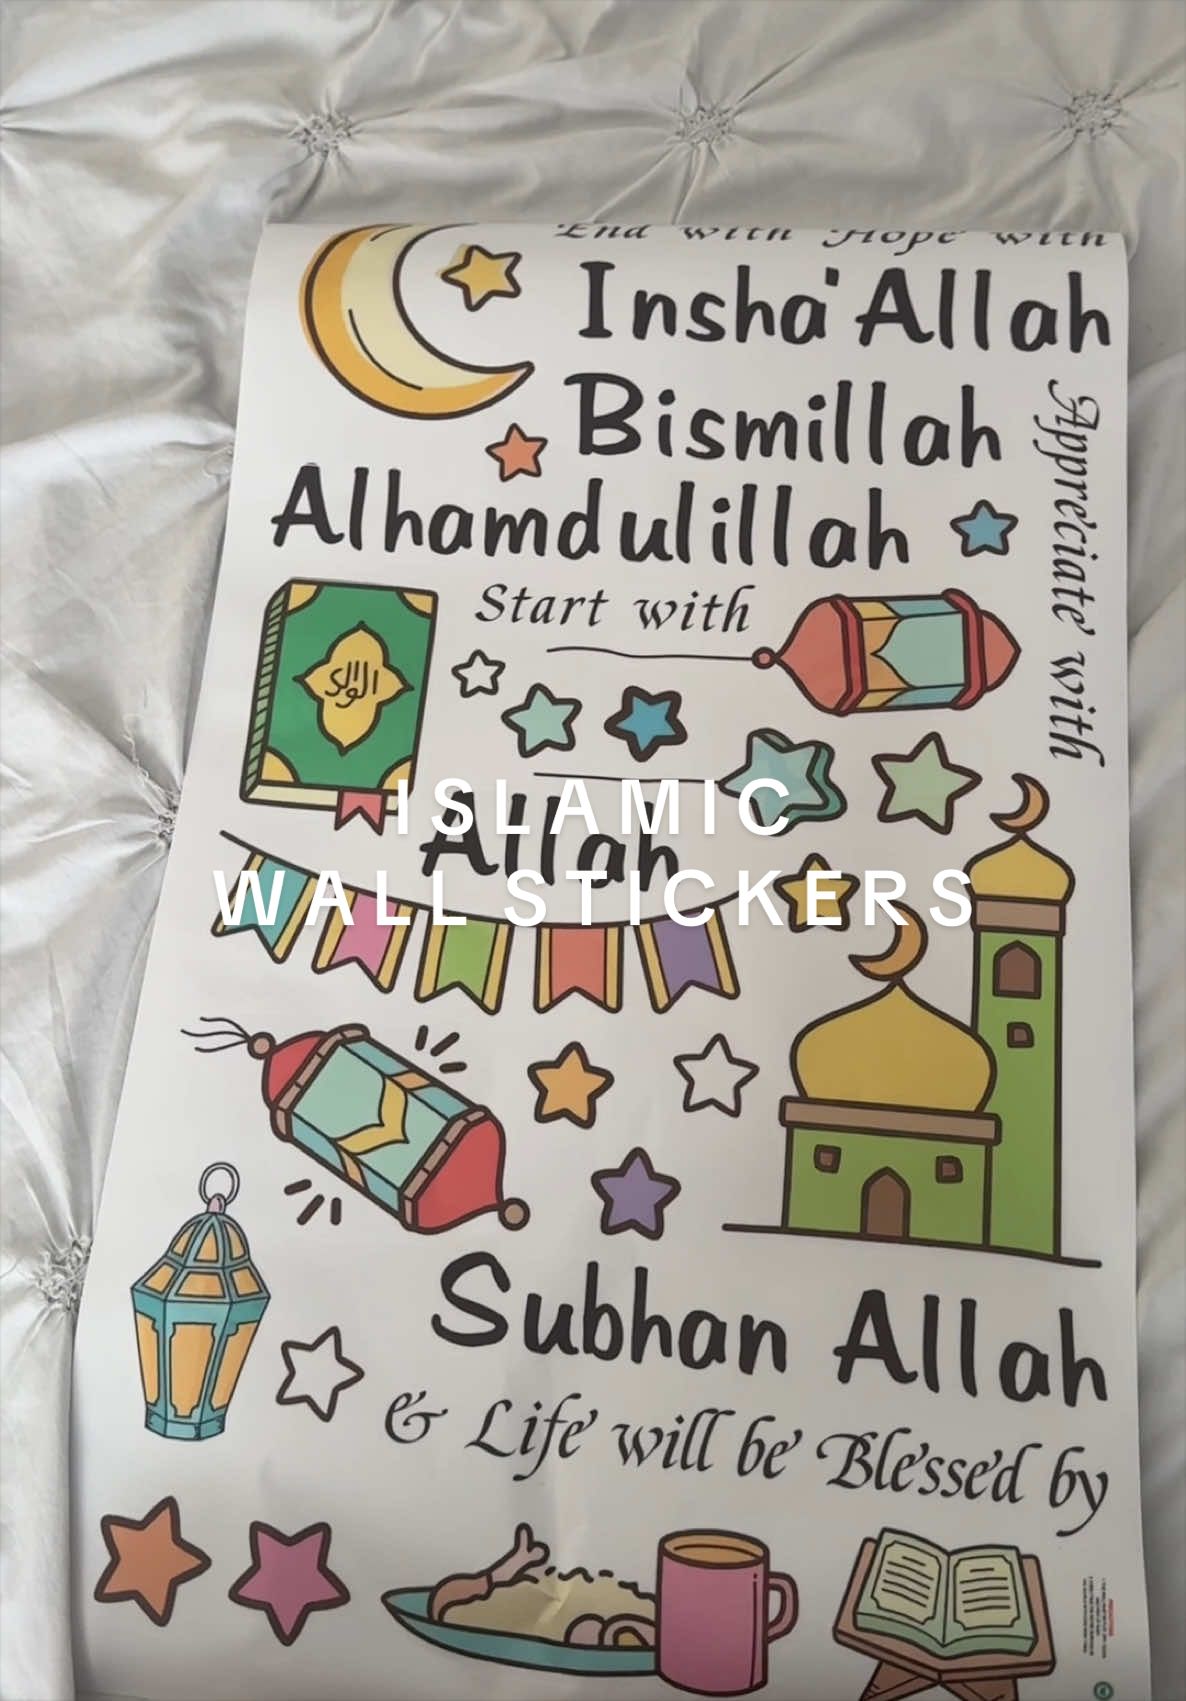 End with Hope with
Insha'Allah
Bismillah
Appreciate with
Alhamdulillah
Start with
ISLAMIC
Allah
WALL STICKERS
Subhan Allah
& Life will be Blessed by